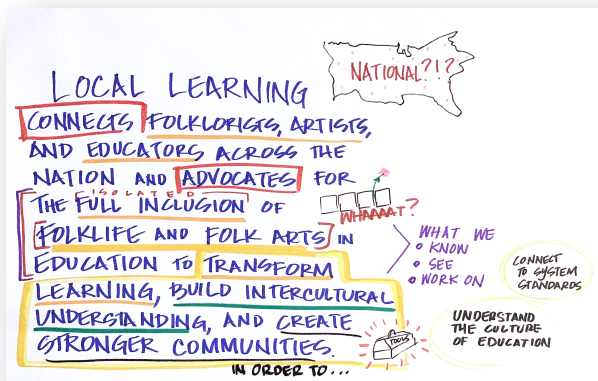 NATIONAL?!?
LOCAL LEARNING
CONNECTS FOLKLORISTS, ARTISTS,
AND EDUCATORS ACROSS THE
NATION AND ADVOCATES FOR
ISOLATED
THE FULL INCLUSION OF
WHAAAAT?
FOLKLIFE AND FOLK ARTS IN
EDUCATION TO TRANSFORM
LEARNING, BUILD INTERCULTURAL
UNDERSTANDING, AND CREATE
STRONGER COMMUNITIES.
IN ORDER TO...
WHAT WE
KNOW
SEE
WORK ON
CONNECT
TO SYSTEM
STANDARDS
UNDERSTAND
THE CULTURE
OF EDUCATION
TOOLS